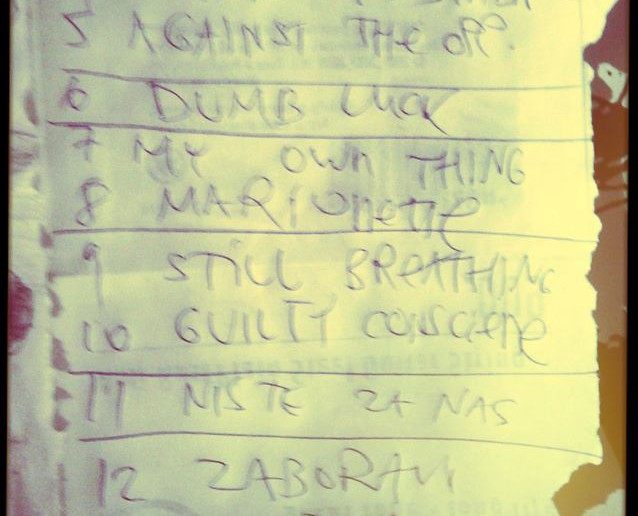 5 AGAINST THE OPP.
6 DUMB LUCK
7 MY OWN THING
8 MARIONETTE
9 STILL BREATHING
10 GUILTY CONSCIENCE
11 NISTE ZA NAS
12 ZABORAVI